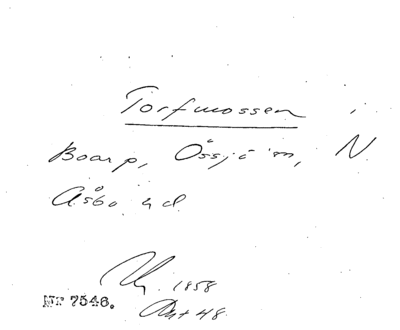 Torfmossen i
Boarp, Össjö sn, N
Åsbo hd
1858
Nr 7546.